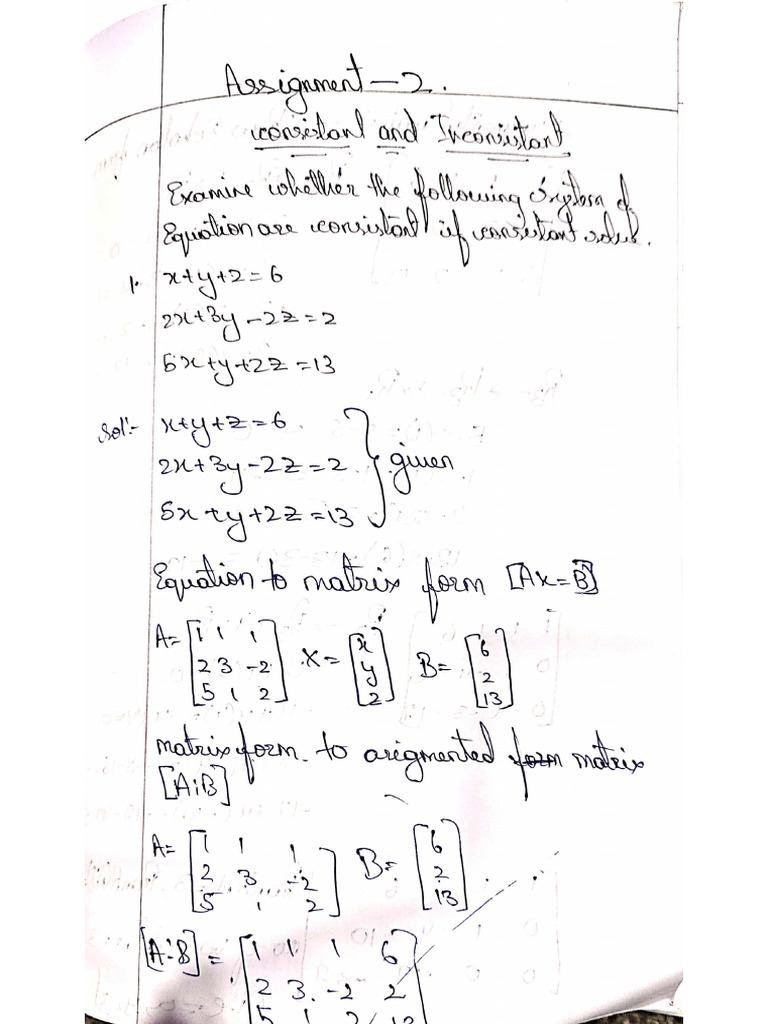 Assignment - 2.
consistant and Inconsistant
Examine whether the following System of
Equation are consistant if consistant solve.
1. x+y+z=6
2x+3y-2z=2
5x+y+2z=13
Sol:- x+y+z=6
2x+3y-2z=2 } given
5x+y+2z=13
Equation to matrix form [Ax=B]
A= [1 1 1 X= [x B= [6
2 3 -2 y 2
5 1 2] z] 13]
matrix form to arigmented form matrix
[A:B]
A= [1 1 1 B= [6
2 3 -2 2
5 1 2] 13]
[A:B] = [1 1 1 6
2 3 -2 2
5 1 2 13